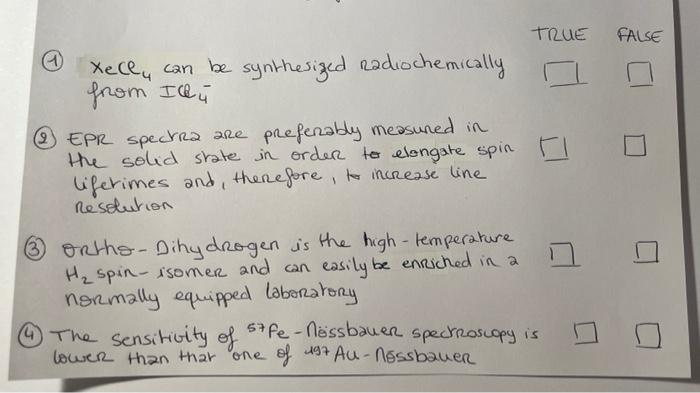 TRUE FALSE
① XeCl₄ can be synthesized radiochemically
from ICl₄⁻
② EPR spectra are preferably measured in
the solid state in order to elongate spin
lifetimes and, therefore, to increase line
resolution
③ ortho-Dihydrogen is the high-temperature
H₂ spin-isomer and can easily be enriched in a
normally equipped laboratory
④ The sensitivity of ⁵⁷Fe-Mössbauer spectroscopy is
lower than that one of ¹⁹⁷Au-Mössbauer